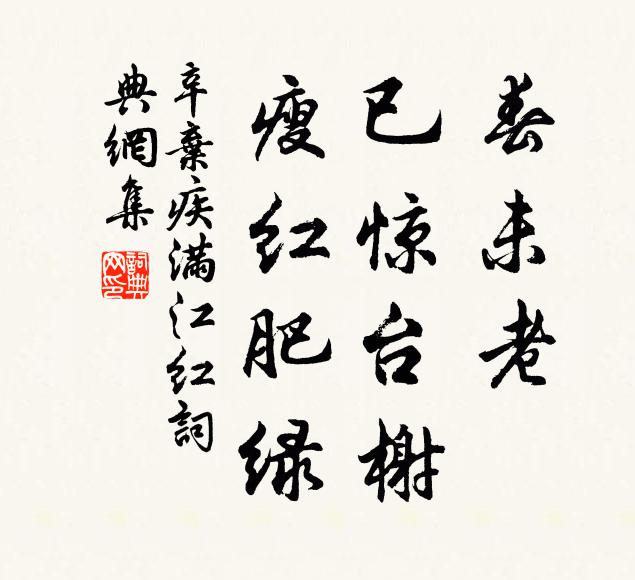 春未老
已惊台榭
瘦红肥绿
辛棄疾满江红詞
典網集
詞典网印